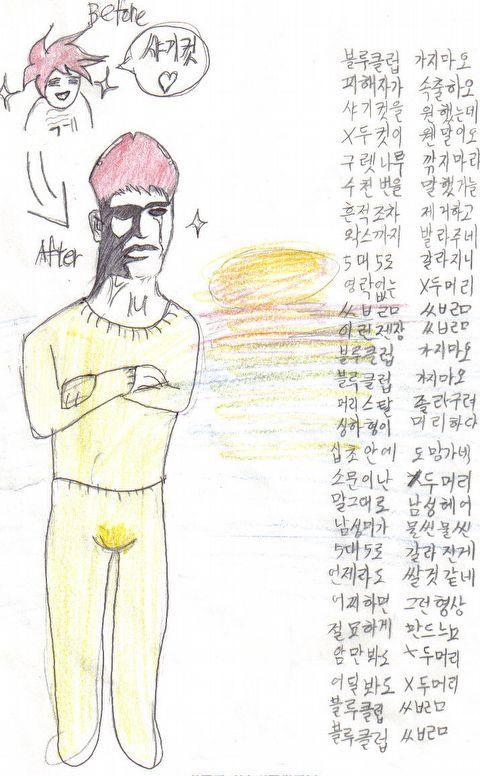 Before
샤기컷
After
블루클럽 가지마오
피해자가 속출하오
샤기컷을 원했는데
X두컷이 웬말이오
구렛나루 깎지마라
수천번을 말했거늘
흔적조차 제거하고
왁스까지 발라주네
5대5로 갈라지니
영락없는 X두머리
ㅆㅂㄹㅁ ㅆㅂㄹㅁ
이런젠장 ㅆㅂㄹㅁ
블루클럽 가지마오
블루클럽 가지마오
패리스탈 졸라구려
싱하형이 미리하다
십초안에 도망가네
소문이난 X두머리
말그대로 남성헤어
남성미가 물씬물씬
5대5로 갈라진게
언제라도 쌀것같네
어찌하면 그런형상
절묘하게 만드느뇨
암만봐도 X두머리
어딜봐도 X두머리
블루클럽 ㅆㅂㄹㅁ
블루클럽 ㅆㅂㄹㅁ